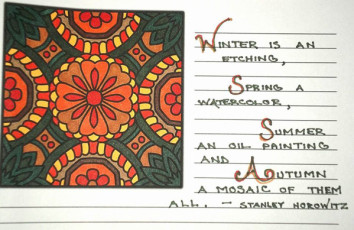 WINTER IS AN
ETCHING,
SPRING A
WATERCOLOR,
SUMMER
AN OIL PAINTING
AND
AUTUMN
A MOSAIC OF THEM
ALL. - STANLEY HOROWITZ